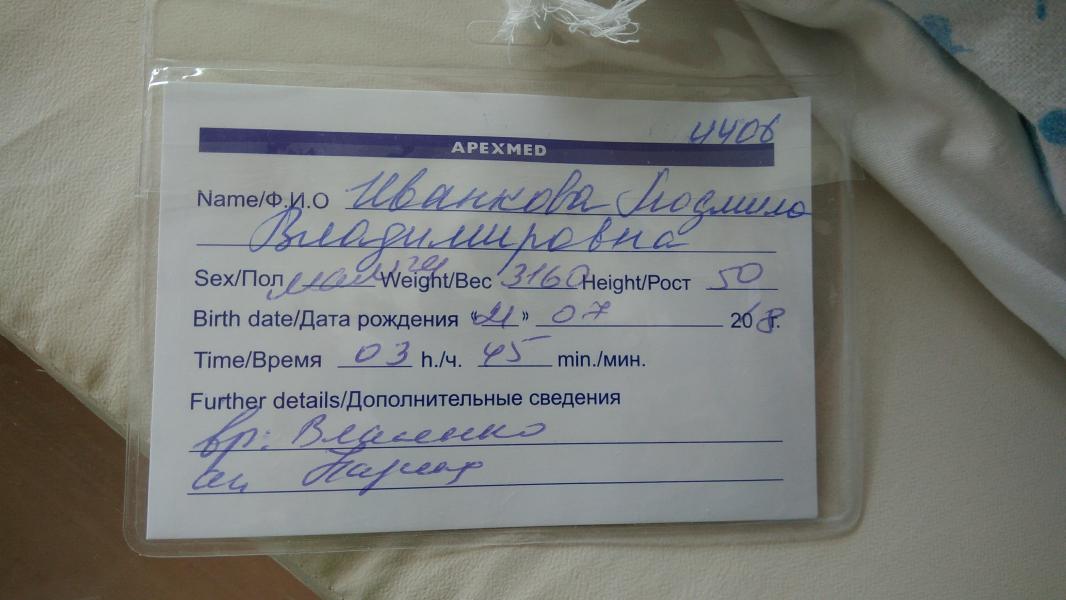 4406
APEXMED
Name/Ф.И.О Иванкова Людмила
Владимировна
Sex/Пол мальч Weight/Вес 3160 Height/Рост 50
Birth date/Дата рождения "21" 07 2018г.
Time/Время 03 h./ч. 45 min./мин.
Further details/Дополнительные сведения
вр: Власенко